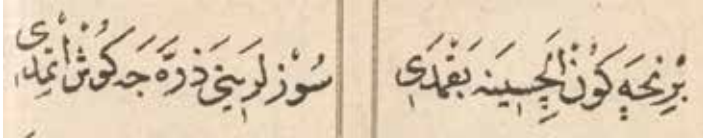 بْرنجَه كُونْ اَيلْچِيسِينَه بَقْمَدَى
سُوزْلرِينِى ذَرَّه جَه كُوشْ اتْمَدِى